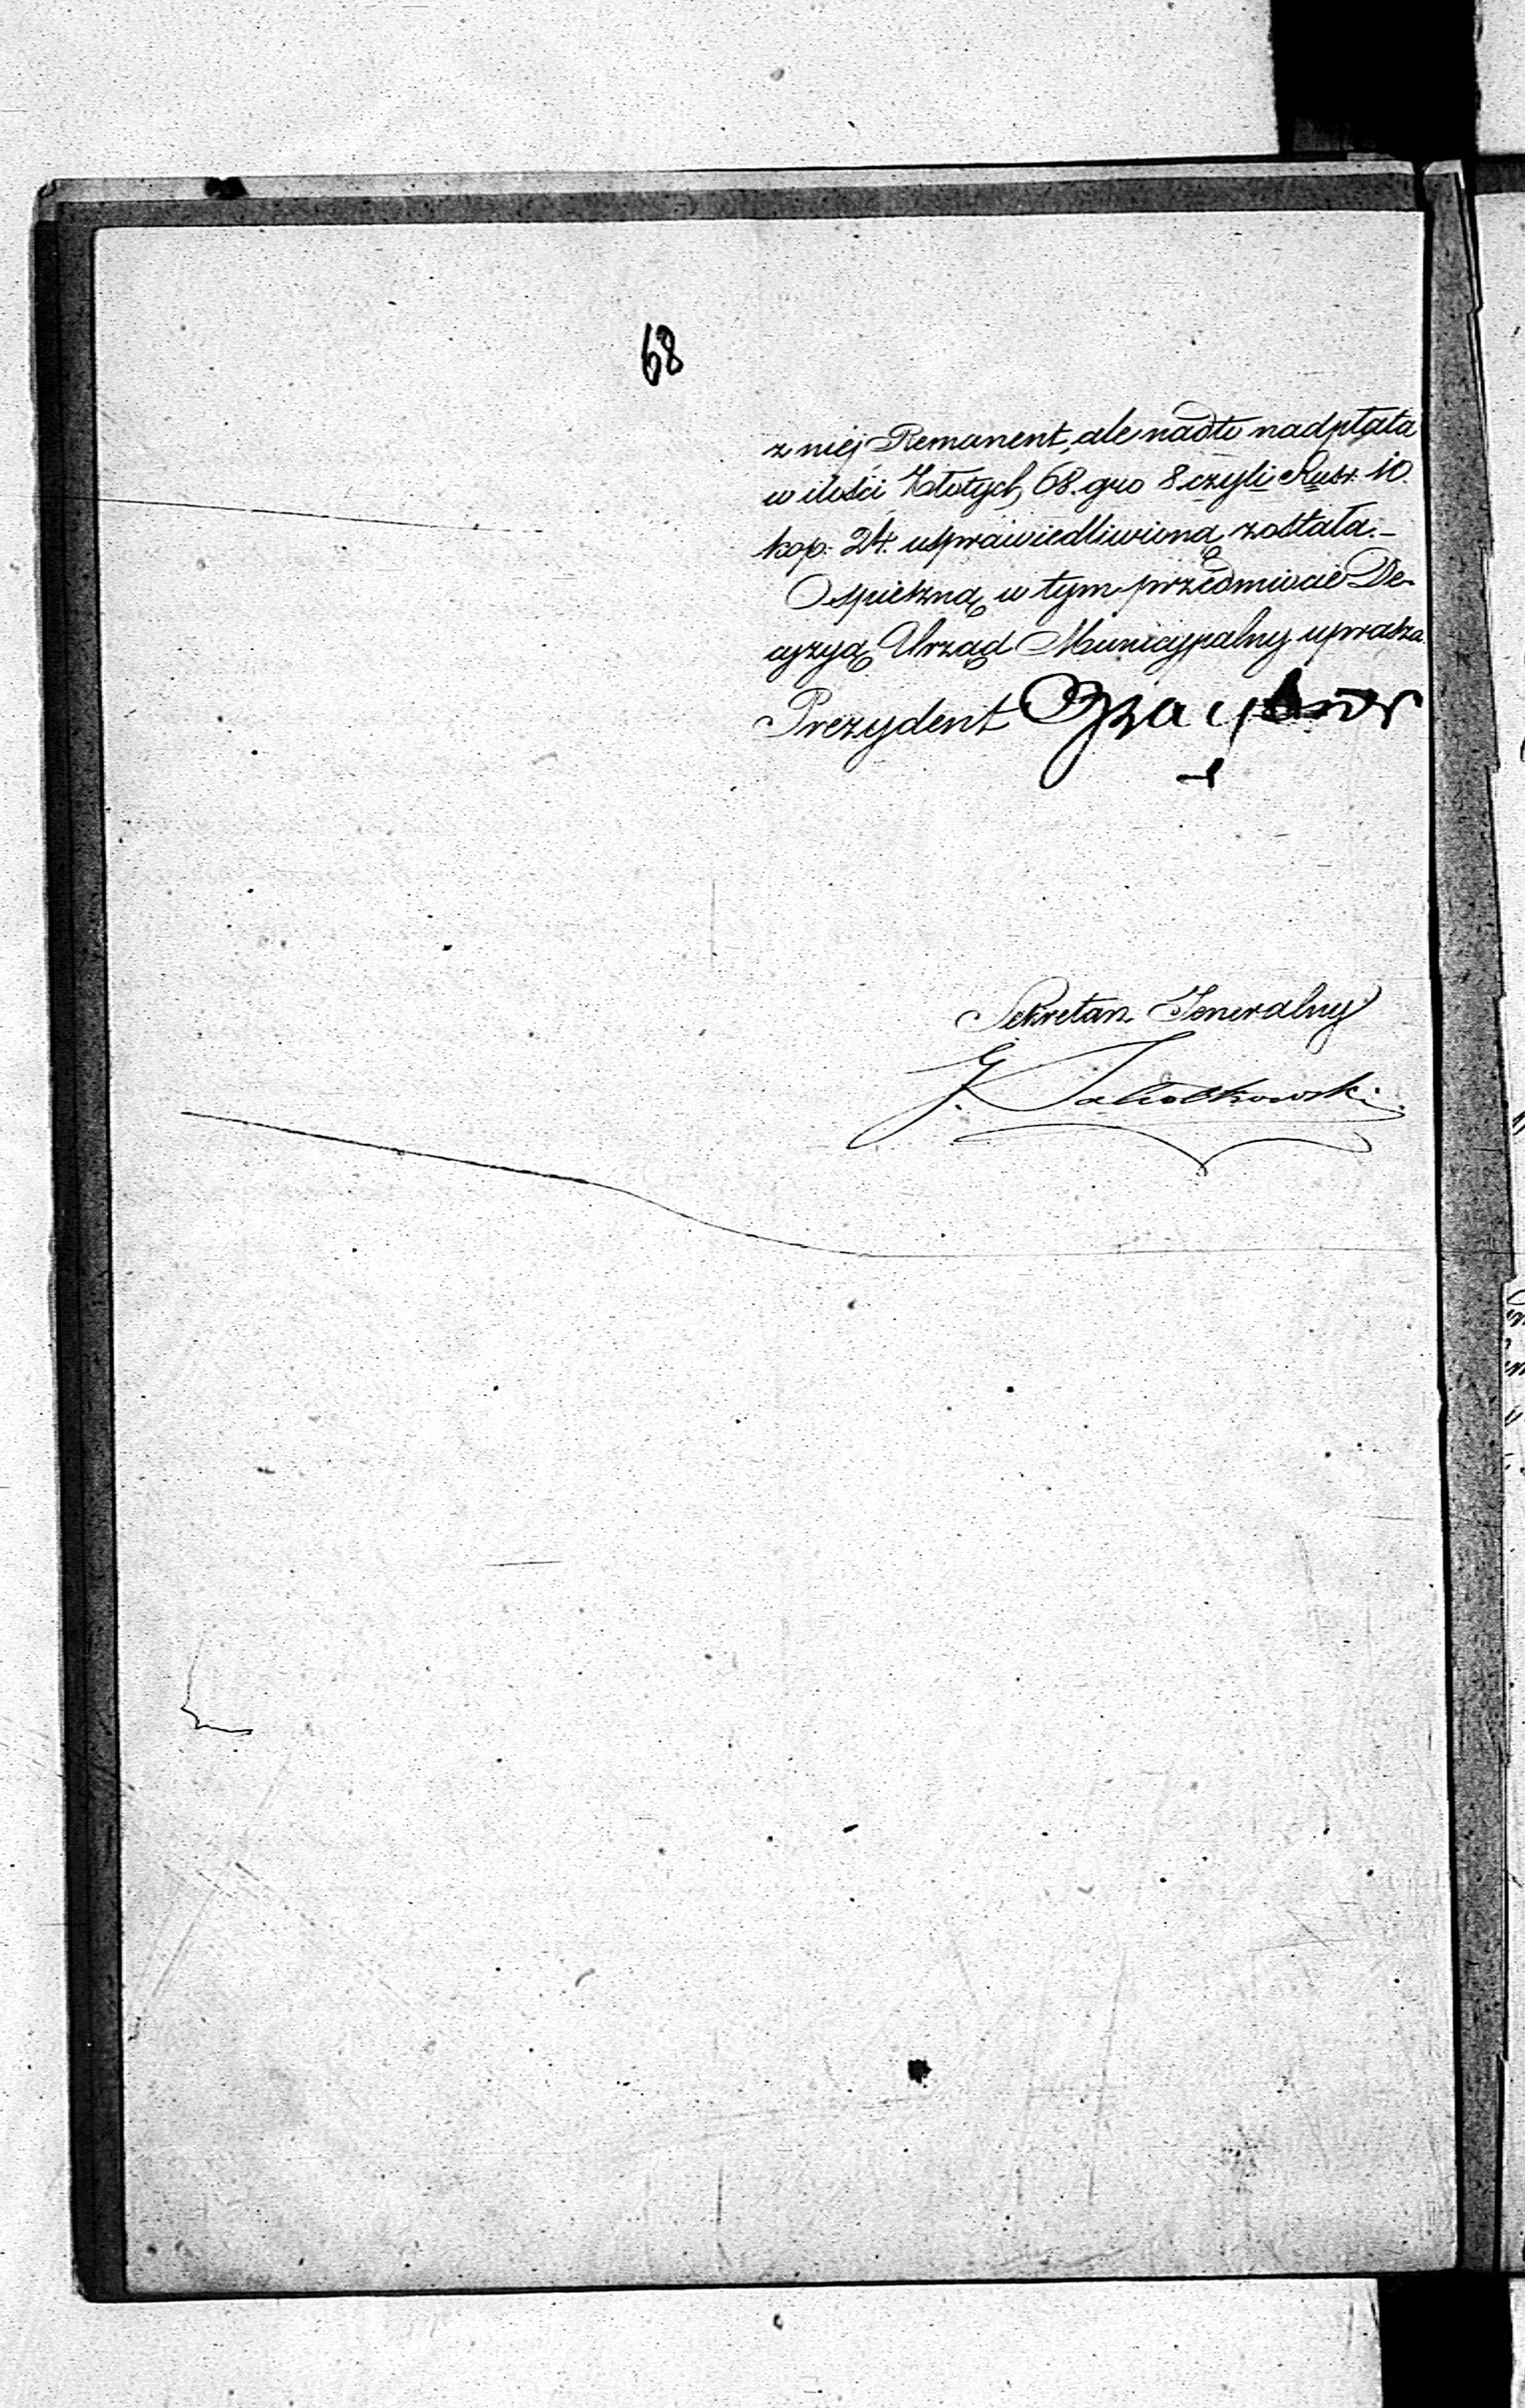 68
z niej Remanent, ale nadto nadpłata
w ilości Złotych 68. gro 8 czyli Rubr. 10.
kop. 24. usprawiedliwioną została. –
O spieszną w tym przedmiocie De-
cyzyą Urząd Municypalny uprasza.
Prezydent
Sekretarz Jeneralny